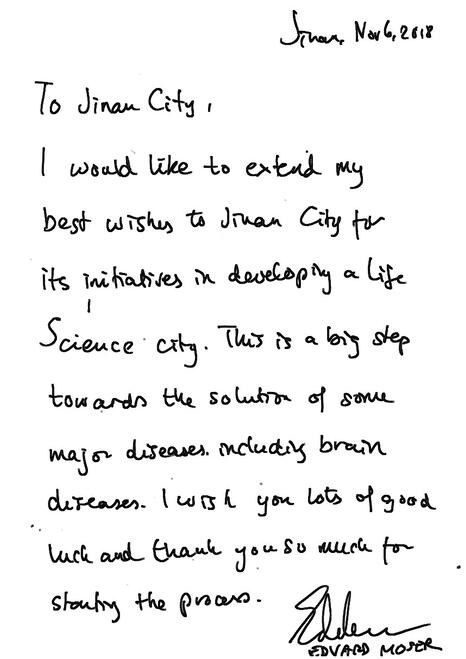 Jinan, Nov 6, 2018
To Jinan City,
I would like to extend my
best wishes to Jinan City for
its initiatives in developing a life
Science city. This is a big step
towards the solution of some
major diseases. including brain
diseases. I wish you lots of good
luck and thank you so much for
starting the process.
EDVARD MOSER